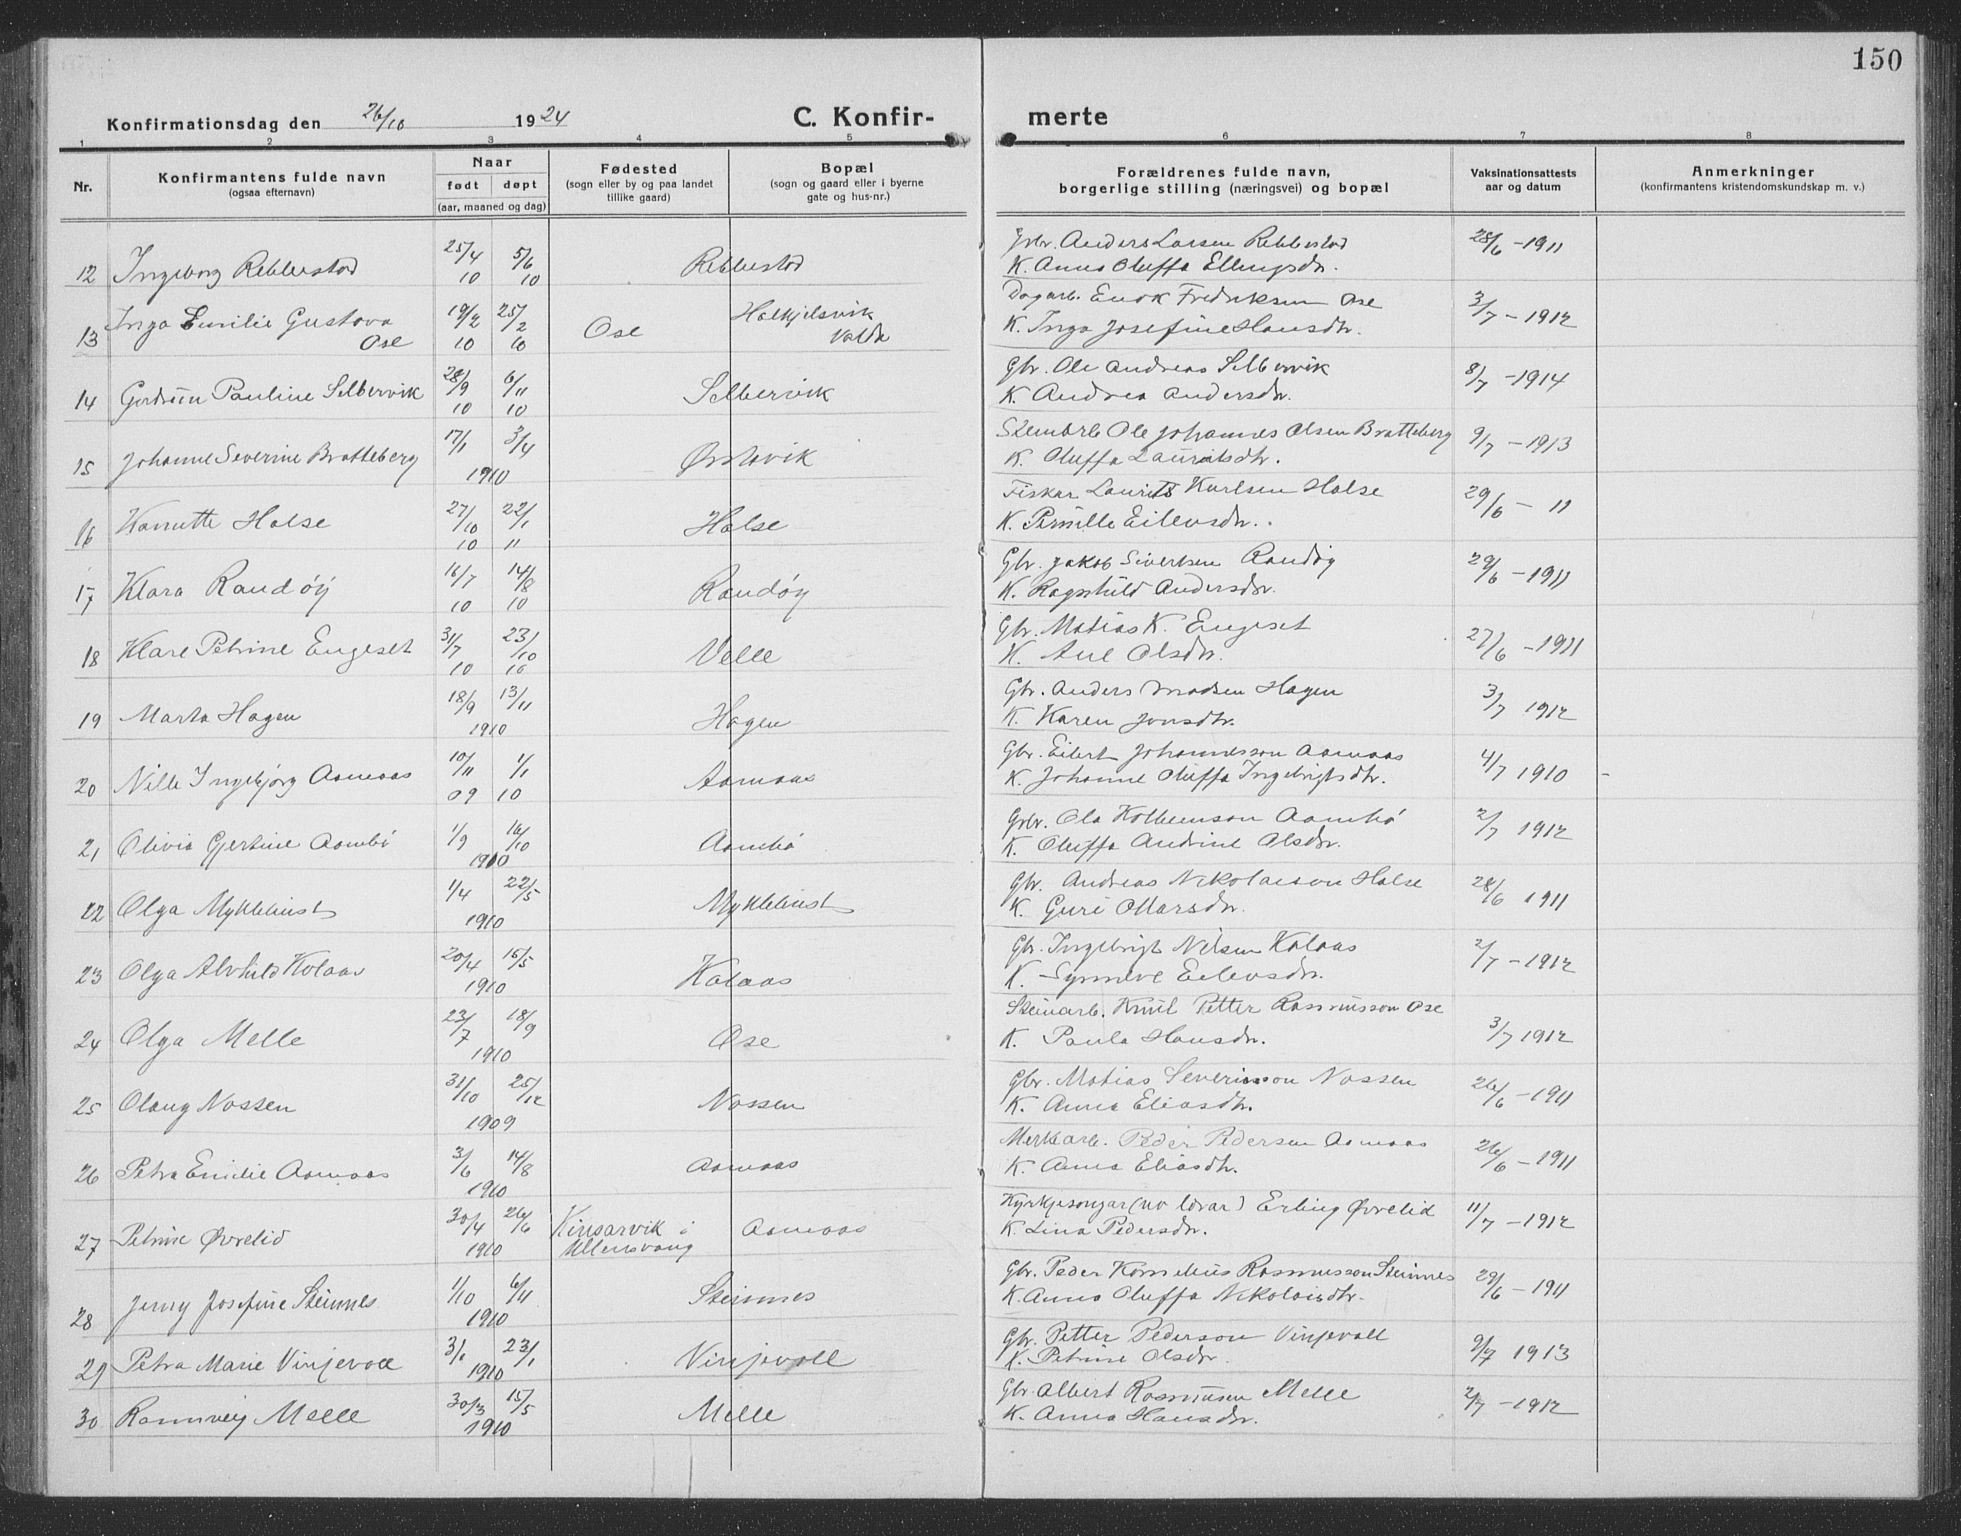 150
Konfirmationsdag den 26/10 1924 C. Konfir- merte
1 2 3 4 5 6 7 8
Nr.
Konfirmantens fulde navn
(ogsaa efternavn)
Naar
født døpt
(aar, maaned og dag)
Fødested
(sogn eller by og paa landet
tillike gaard)
Bopæl
(sogn og gaard eller i byerne
gate og hus-nr.)
Forældrenes fulde navn,
borgerlige stilling (næringsvei) og bopæl
Vaksinationsattests
aar og datum
Anmerkninger
(konfirmantens kristendomskundskap m. v.)
12 Ingeborg Rebbestad 25/4 10 5/6 10 Rebbestad
Gbr. Anders Larsen Rebbestad
K. Anna Oluffa Ellingsdr. 28/6 - 1911
13 Inga Emilie Gustava
Ose 19/2 10 25/2 10 Ose Halkjelsvik
Volda
Dagarb. Enok Fredriksen Ose
K. Inga Josefine Hansdtr. 3/7 - 1912
14 Gudrun Pauline Selbervik 28/9 10 6/11 10 Selbervik
Gbr. Ole Andreas Selbervik
K. Andrea Andersdr. 8/7 - 1914
15 Johanne Severine Bratteberg 17/1 3/4 1910 Ørstavik
Ole Johannes Olsen Bratteberg
K. Oluffa Lauritsdtr. 9/7 - 1913
16 Hanutte Halse 27/10 10 22/1 11 Halse
Fiskar Laurits Karlsen Halse
K. Pernille Eilevsdr. 29/6 - 11
17 Klara Randøy 16/7 10 14/8 10 Randøy
Gbr. Jakob Sivertsen Randøy
K. Ragnhild Andersdr. 29/6 - 1911
18 Klare Petrine Engeset 31/7 10 23/10 10 Velle
Gbr. Matias K. Engeset
K. Ane Olsdr. 27/6 - 1911
19 Marta Hagen 18/9 13/11 1910 Hagen
Gbr. Anders Madsen Hagen
K. Karen Jonsdtr. 3/7 1912
20 Nille Ingebjørg Aamaas 10/11 09 1/1 10 Aamaas
Gbr. Eilert Johannesson Aamaas
K. Johanne Oluffa Ingebrigtsdtr. 4/7 1910 -
21 Olivia Gjertine Aambø 1/9 16/10 1910 Aambø
Gbr. Ola Aambø
K. Oluffa Andrine Olsdr. 2/7 1912
22 Olga Myklebust 1/4 22/5 1910 Myklebust
Gbr. Andreas Nikolaison Halse
K. Guri Olarsdr. 28/6 1911
23 Olga Alvhild Kolaas 20/4 15/5 1910 Kolaas
Gbr. Ingebrigt Nilsen Kolaas
K. Synneve Eilevsdr. 2/7 - 1912
24 Olga Melle 23/7 18/9 1910 Ose
Steinarb. Knut Petter Rasmusson Ose
K. Paula Hansdr. 3/7 1912
25 Olaug Nossen 31/10 25/12 1909 Nossen
Gbr. Matias Severinsson Nossen
K. Anna Eliasdtr. 26/6 - 1911
26 Petra Emilie Aamaas 3/6 14/8 1910 Aamaas
Peder Pedersen Aamaas
K. Anna Eliasdtr. 26/6 - 1911
27 Petrine Øvrelid 30/4 26/6 1910 Kinsarvik i
Ullensvang Aamaas
Kyrkjesongar (no lærar) Erling Øvrelid
K. Lina Pedersdr. 11/7 - 1912
28 Jenny Josefine Steinnes 1/10 6/11 1910 Steinnes
Gbr. Peder Kornelius Rasmusson Steinnes
K. Anna Oluffa Nikolaisdtr. 29/6 - 1911
29 Petra Marie Vinjevoll 3/1 23/1 1910 Vinjevoll
Gbr. Petter Pederson Vinjevoll
K. Petrine Olsdr. 9/7 1913
30 Rannveig Melle 30/3 15/5 1910 Melle
Gbr. Albert Rasmusen Melle
K. Anna Hansdr. 2/7 - 1912